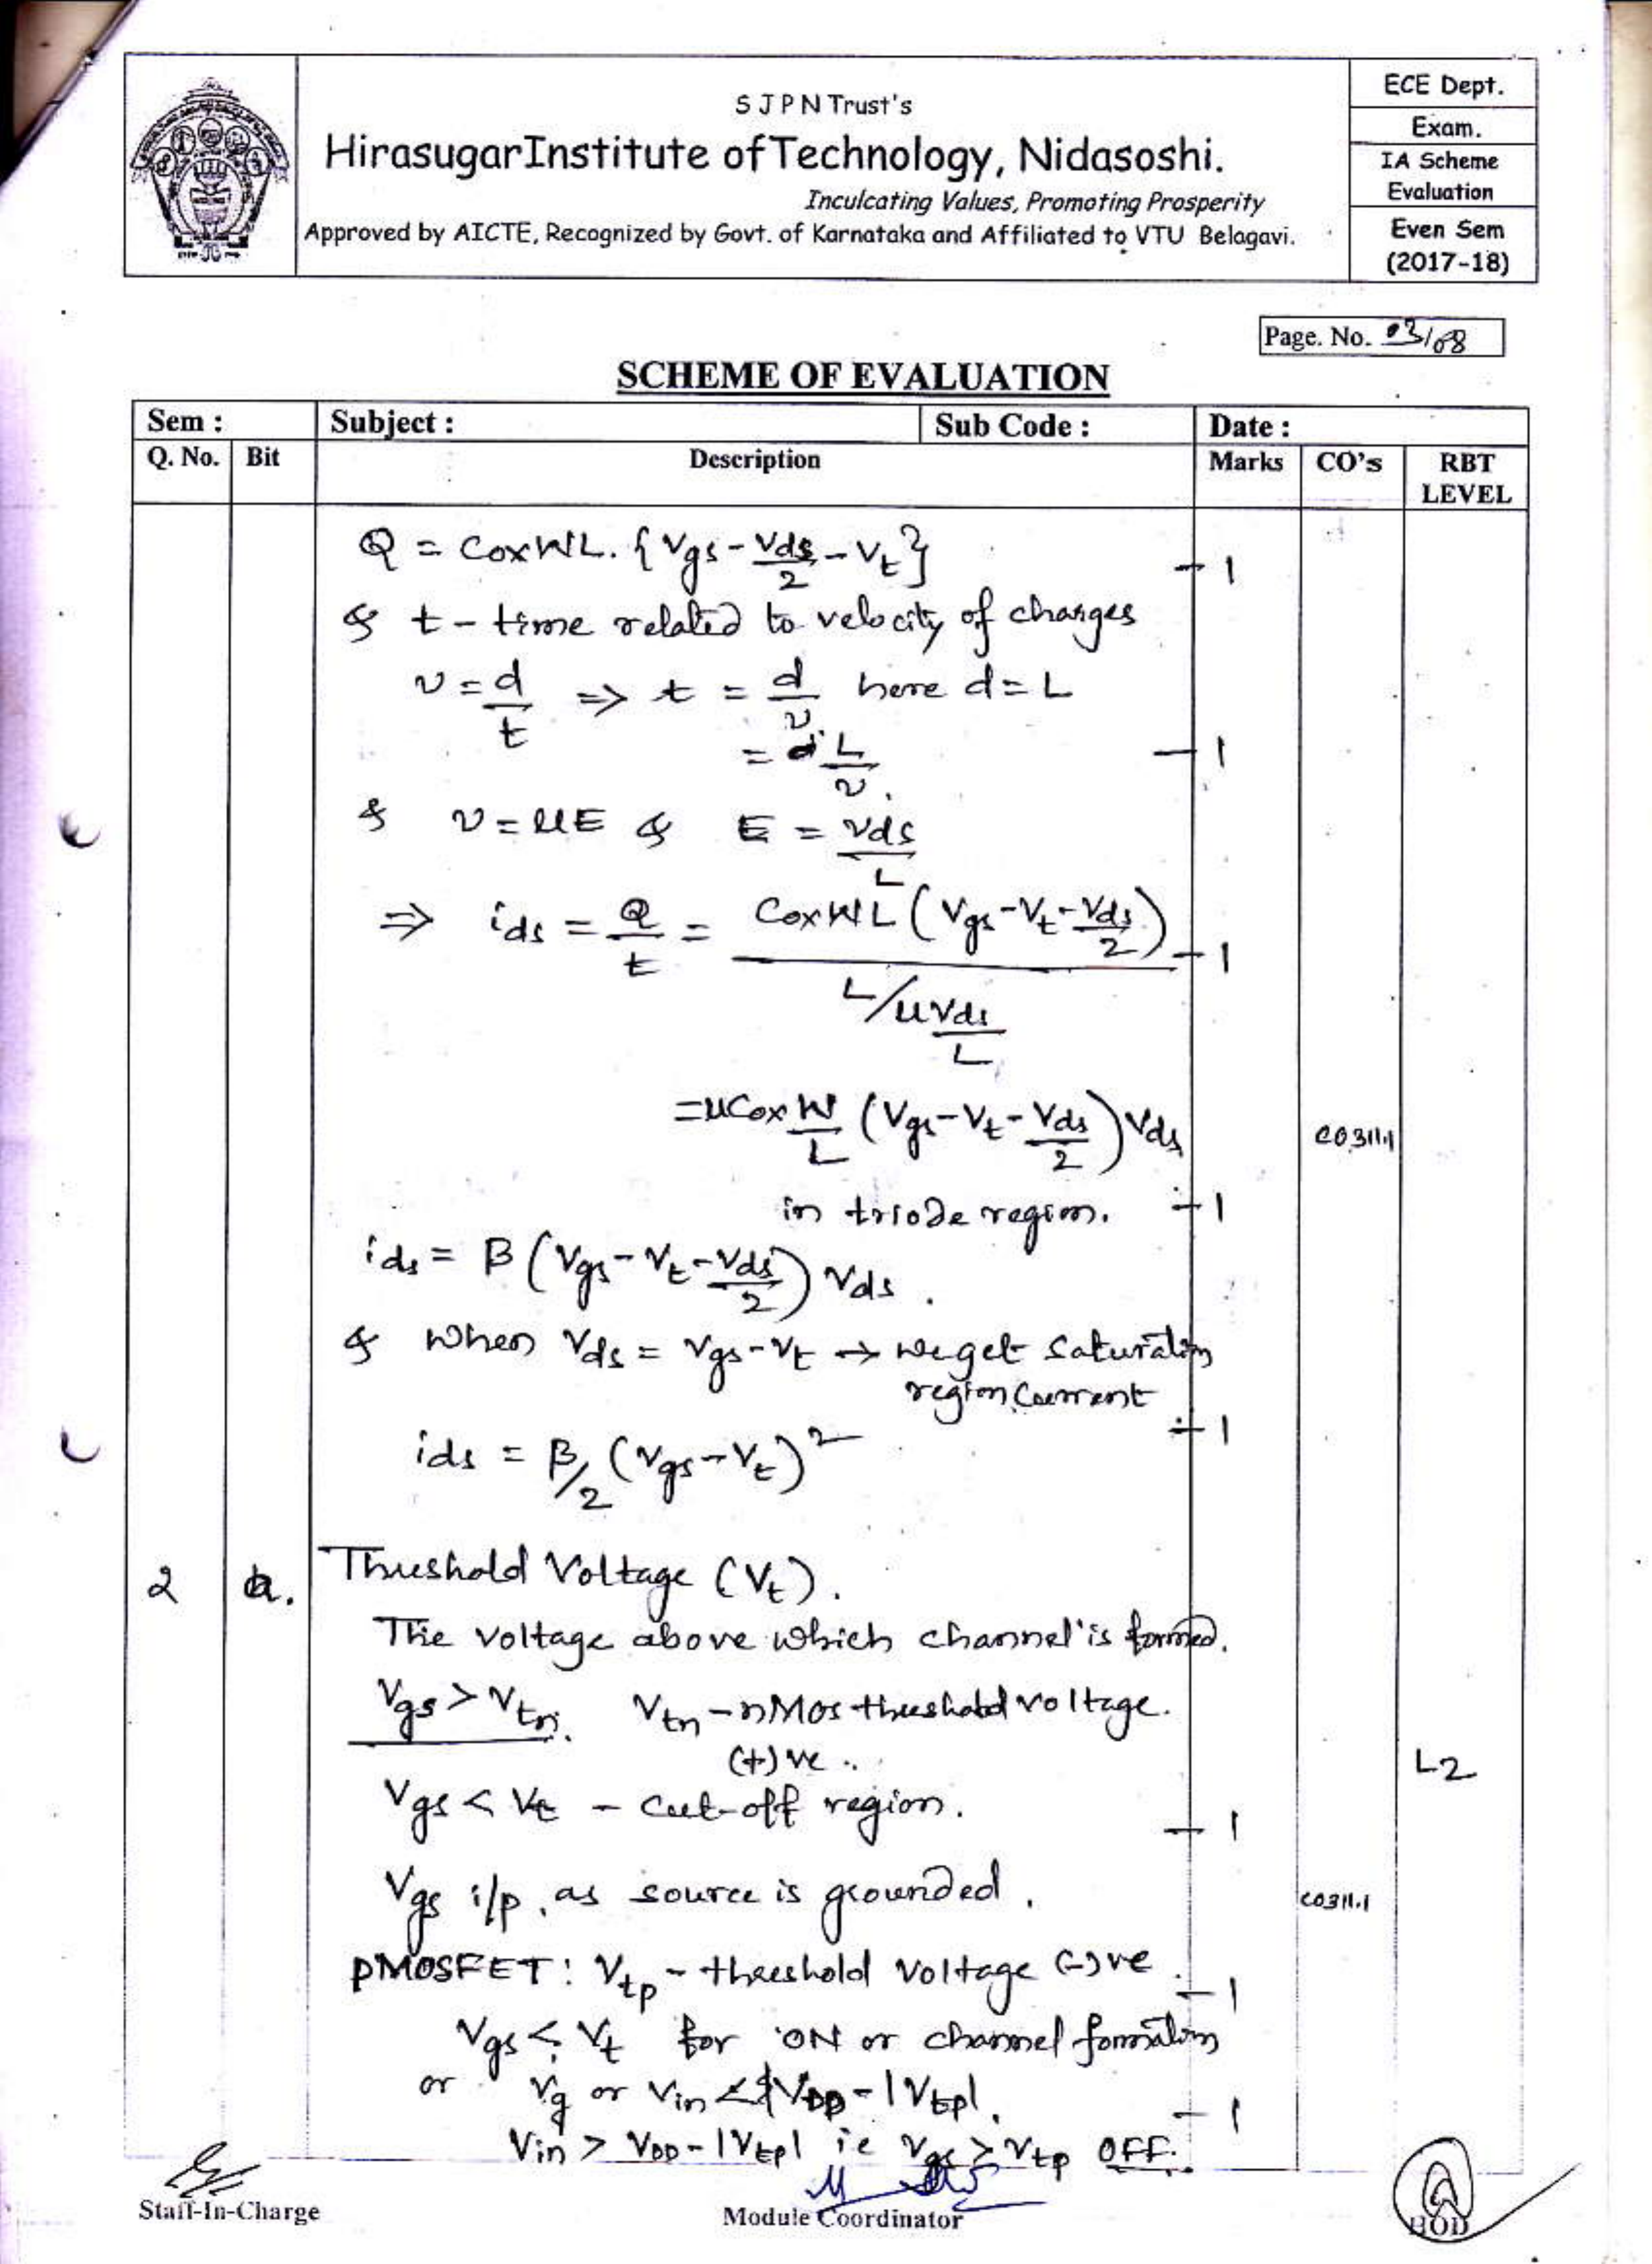 S J P N Trust's
HirasugarInstitute ofTechnology, Nidasoshi.
Inculcating Values, Promoting Prosperity
Approved by AICTE, Recognized by Govt. of Karnataka and Affiliated to VTU Belagavi.
ECE Dept.
Exam.
IA Scheme
Evaluation
Even Sem
(2017-18)
Page. No. 03/08
SCHEME OF EVALUATION
Sem : Subject : Sub Code : Date :
Q. No. Bit Description Marks CO's RBT LEVEL
Q = CoxWL. {Vgs - Vds/2 - Vt} - 1
& t - time related to velocity of charges
v = d/t => t = d/v here d = L
= L/v. - 1
& v = μE & E = Vds/L
=> ids = Q/t = CoxWL (Vgs - Vt - Vds/2) / (L/μVds/L) - 1
= μCox W/L (Vgs - Vt - Vds/2) Vds CO311.1
in triode region. - 1
ids = β (Vgs - Vt - Vds/2) Vds.
& When Vds = Vgs - Vt → we get Saturation
region Current - 1
ids = β/2 (Vgs - Vt)²
2 a. Threshold Voltage (Vt).
The voltage above which channel is formed.
Vgs > Vtn. Vtn - nMos threshold voltage.
(+)ve. L2
Vgs < Vt - cut-off region. - 1
Vgs i/p, as source is grounded. CO311.1
pMOSFET: Vtp - threshold voltage (-)ve. - 1
Vgs < Vt for ON or channel formation
or Vg or Vin < VDD - |Vtp|. - 1
Vin > VDD - |Vtp| ie Vgs > Vtp OFF.
Staff-In-Charge Module Coordinator HOD